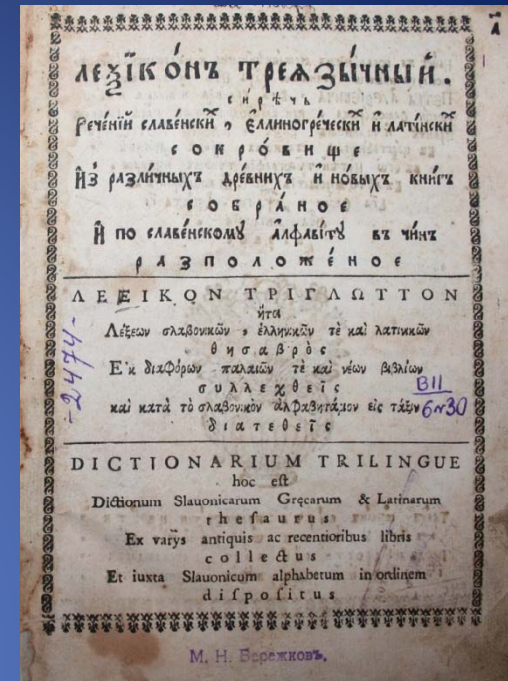 леѯїко́нъ треѧзы́чный.
си́рѣчь
Рече́нїй славе́нскиⷯ, є҆ллиногре́ческиⷯ и҆ лати́нскиⷯ
сокро́вище
И҆з̾ разли́чныхъ дре́внихъ и҆ но́выхъ кни́гъ
собра́ное
И҆ по славе́нскому а҆лфави́ту въ чи́нъ
расположе́ное
ΛΕΞΙΚΟΝ ΤΡΙΓΛΩΤΤΟΝ
ἤτοι
Λέξεων σλαβονικῶν, ἑλληνικῶν τὲ καὶ λατινικῶν
θησαυρὸς
Ἐκ διαφόρων παλαιῶν τὲ καὶ νέων βιβλίων
συλλεχθεὶς
καὶ κατὰ τὸ σλαβονικὸν ἀλφαβητάριον εἰς τάξιν
διατεθεὶς
-2474-
BII
6№30
DICTIONARIUM TRILINGUE
hoc est
Dictionum Slauonicarum Gręcarum & Latinarum
thesaurus
Ex varijs antiquis ac recentioribus libris
collectus
Et iuxta Slauonicum alphabetum in ordinem
dispositus
М. Н. Бережковъ.